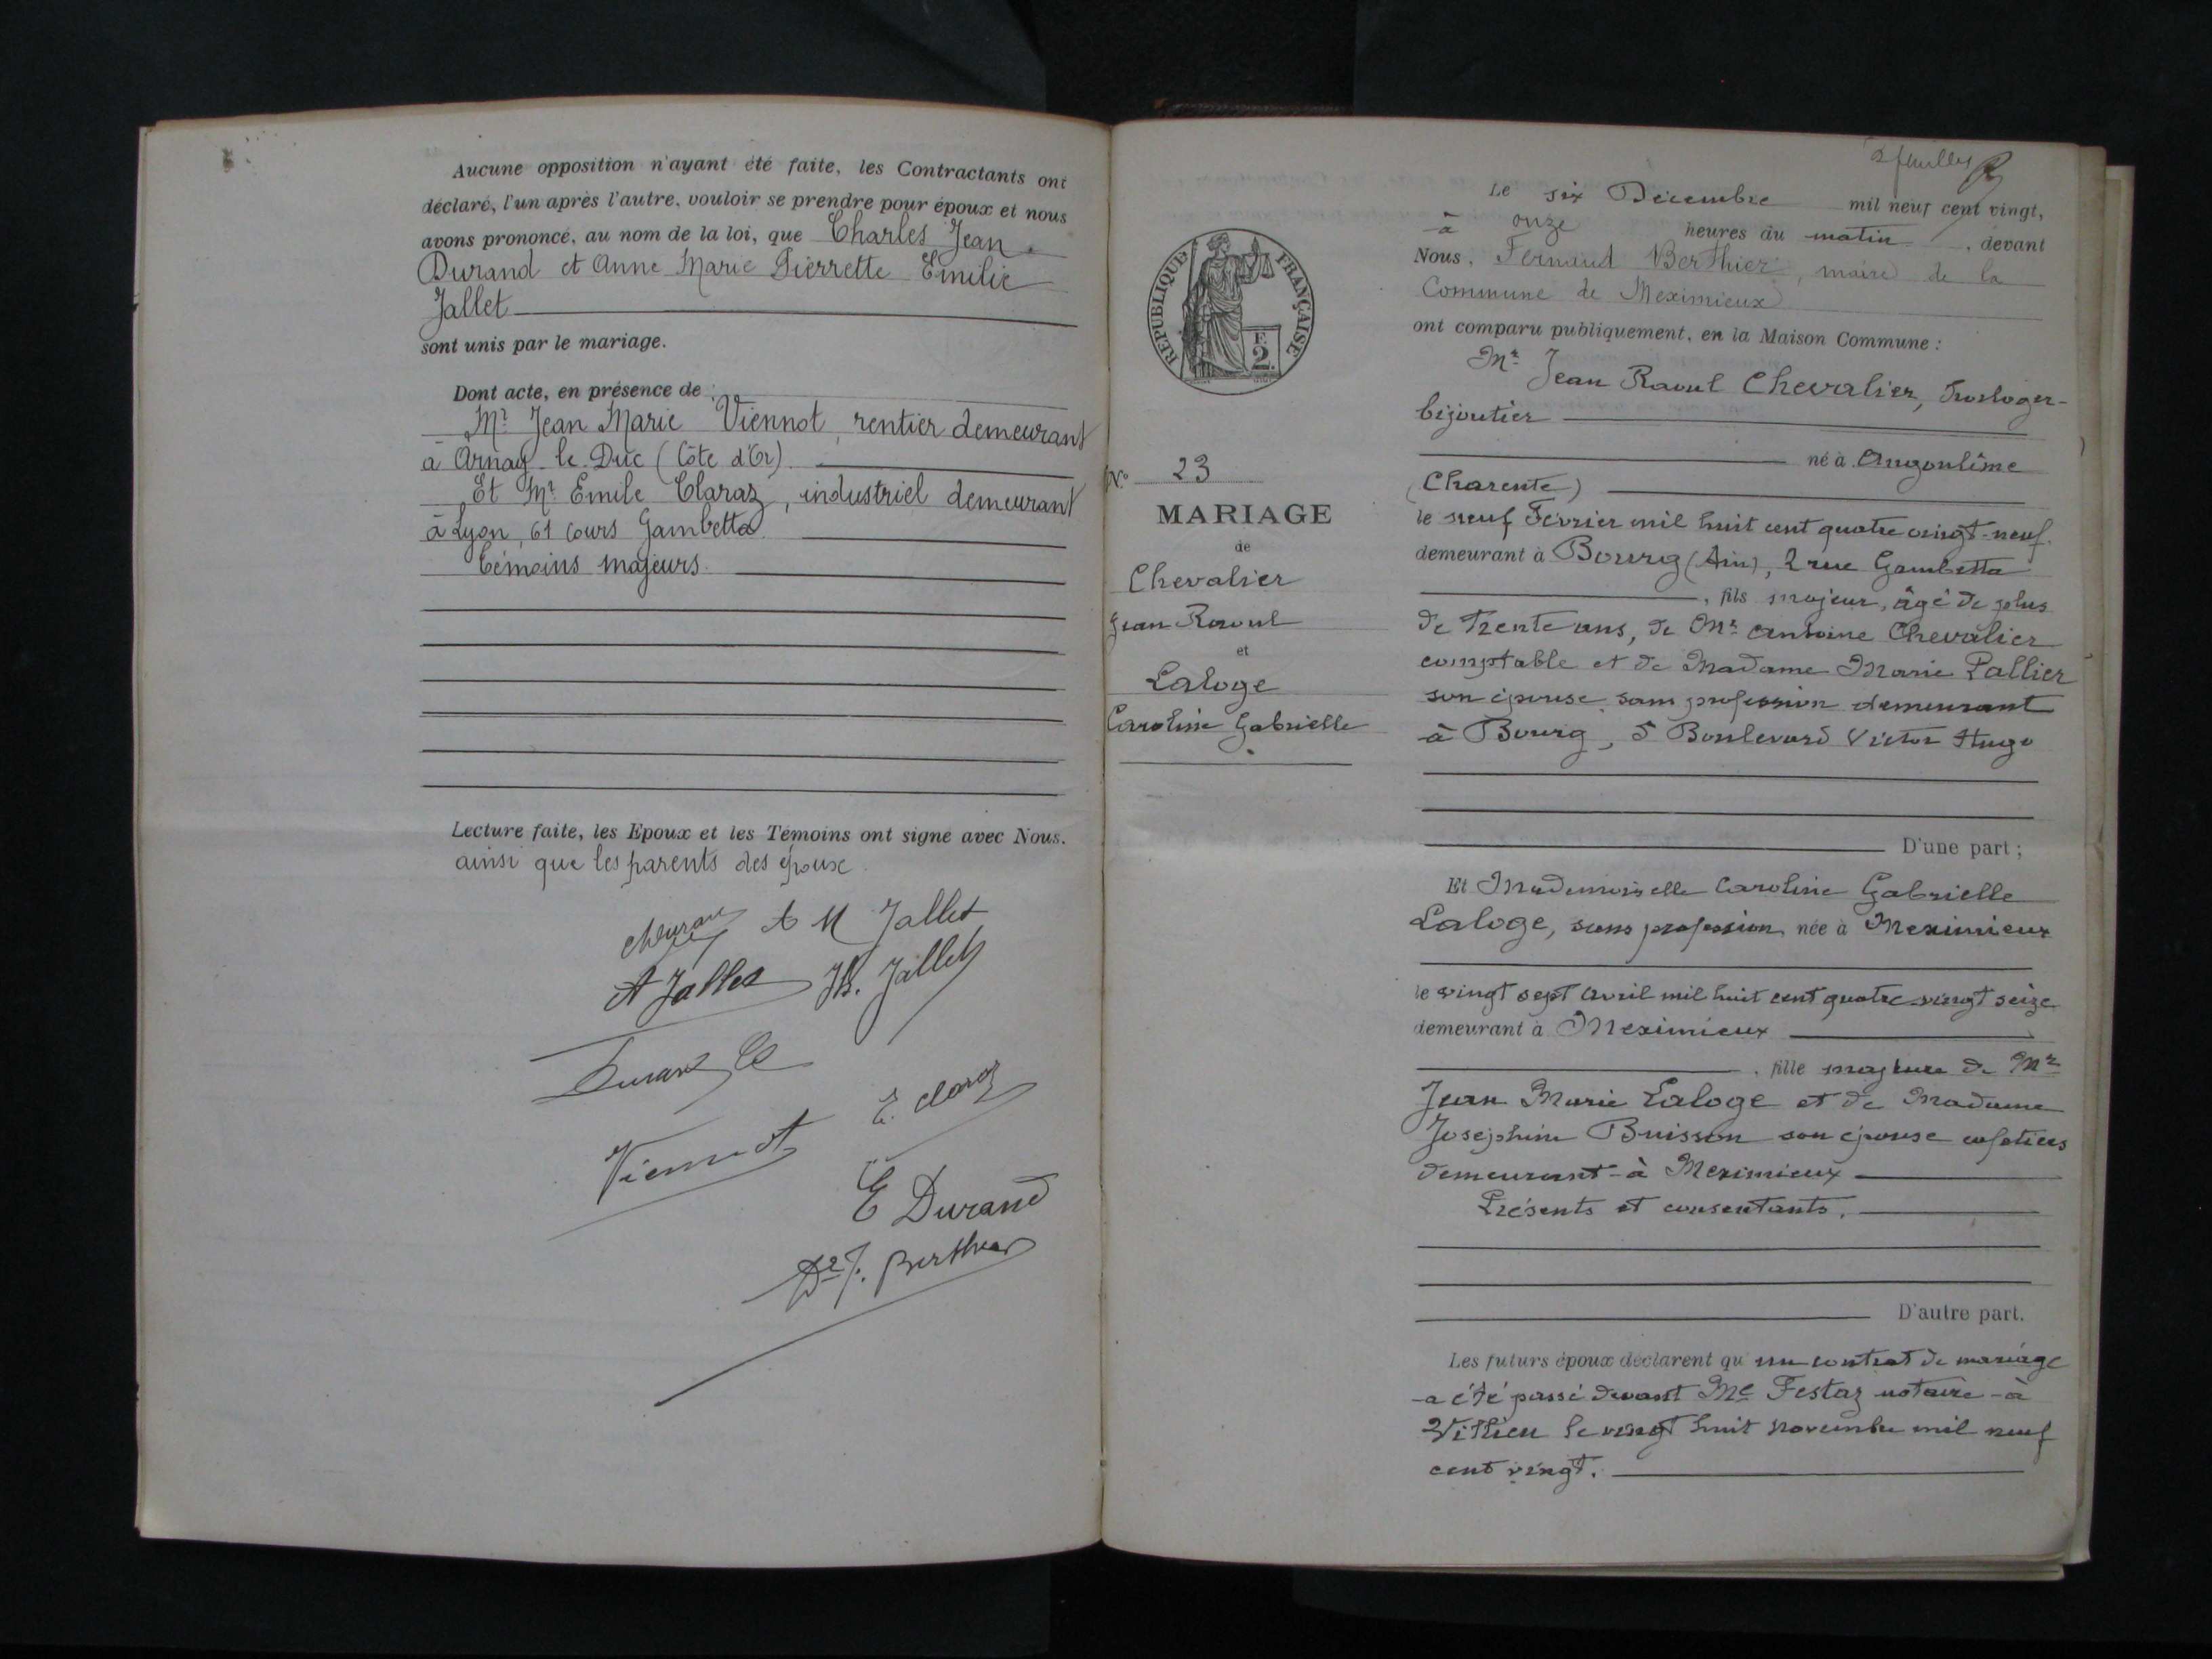 Aucune opposition n'ayant été faite, les Contractants ont
déclaré, l'un après l'autre, vouloir se prendre pour époux et nous
avons prononcé, au nom de la loi, que Charles Jean
Durand et Anne Marie Pierrette Emilie
Jallet
sont unis par le mariage.
Dont acte, en présence de :
Mr Jean Marie Viennot, rentier demeurant
à Arnay-le-Duc (Côte d'Or).
Et Mr Emile Claraz, industriel demeurant
à Lyon, 61 Cours Gambetta
témoins majeurs.
Lecture faite, les Epoux et les Témoins ont signé avec Nous.
ainsi que les parents des époux.
A M Jallet
A Jallet Jh. Jallet
Durand
E. Claraz
Viennot
E Durand
Dr F. Berthier
2 feuilles
REPUBLIQUE FRANÇAISE
F
2
No 23
MARIAGE
de
Chevalier
Jean Raoul
et
Laloge
Caroline Gabrielle
Le six Décembre mil neuf cent vingt,
à onze heures du matin, devant
Nous, Fernand Berthier, maire de la
Commune de Meximieux
ont comparu publiquement, en la Maison Commune :
Mr Jean Raoul Chevalier, horloger-
bijoutier
né à Angoulême
(Charente)
le neuf Février mil huit cent quatre vingt-neuf.
demeurant à Bourg (Ain), 2 rue Gambetta
, fils majeur, âgé de plus
de trente ans, de Mr Antoine Chevalier
comptable et de Madame Marie Pallier
son épouse sans profession demeurant
à Bourg, 5 Boulevard Victor Hugo
D'une part ;
Et Mademoiselle Caroline Gabrielle
Laloge, sans profession née à Meximieux
le vingt sept Avril mil huit cent quatre-vingt seize
demeurant à Meximieux
, fille majeure de Mr
Jean Marie Laloge et de Madame
Joséphine Buisson son épouse cafetiers
demeurant à Meximieux
Présents et consentants.
D'autre part.
Les futurs époux déclarent qu'un contrat de mariage
a été passé devant Me Festaz notaire à
Villieu le vingt huit novembre mil neuf
cent vingt.